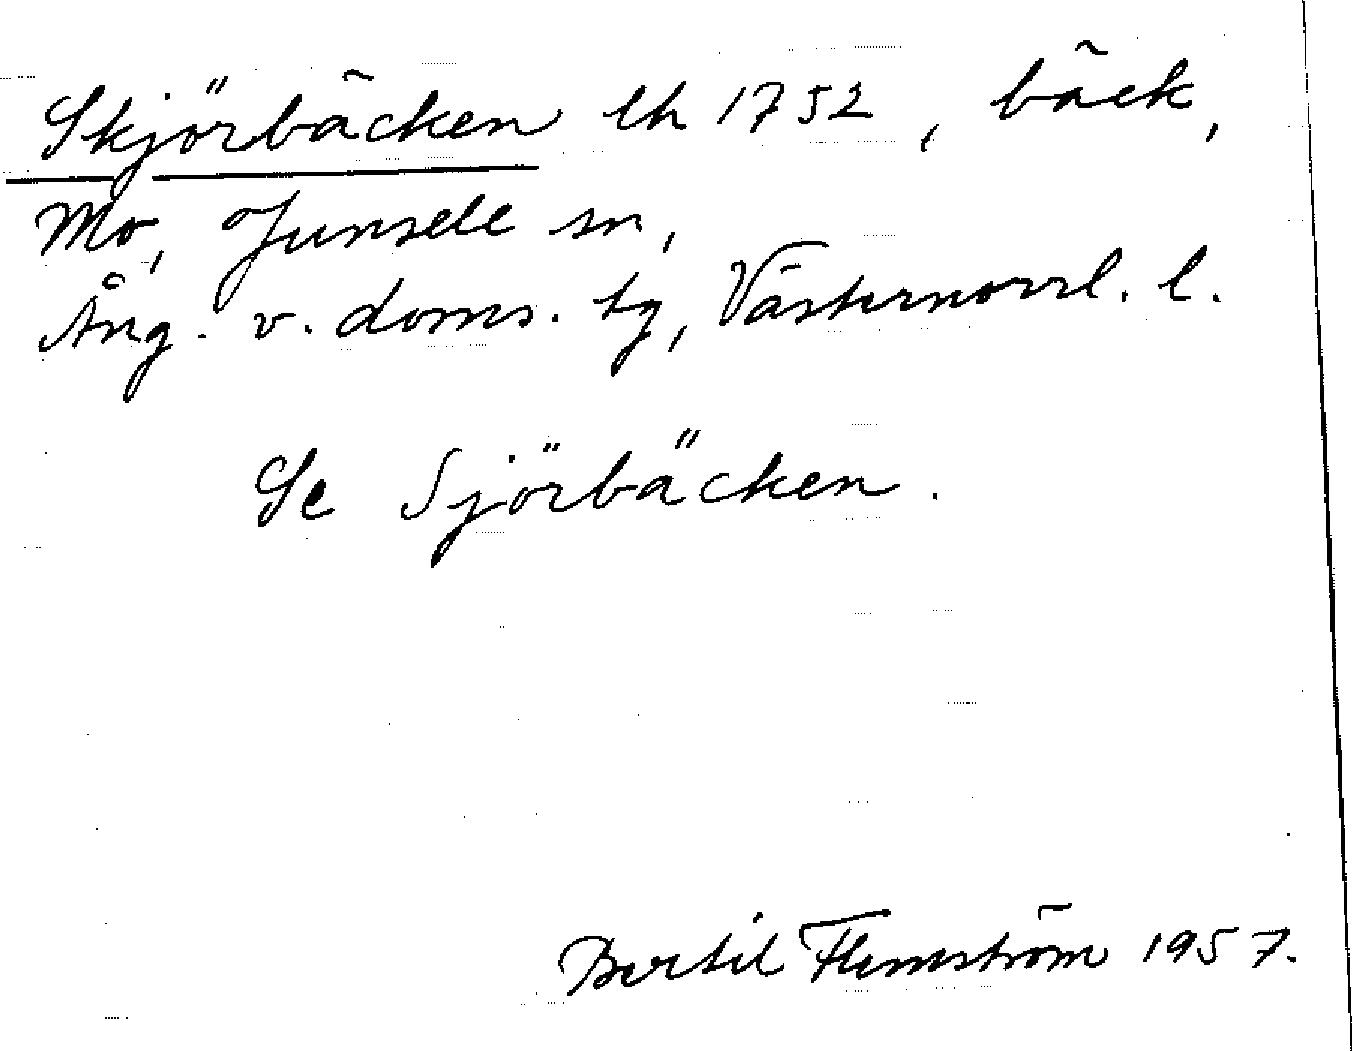 Skjörbäcken lh 1752, bäck,
Mo, Junsele sn,
Ång. v. doms. tg, Västernorrl. l.
Se Sjörbäcken.
Bertil Flemström 1957.